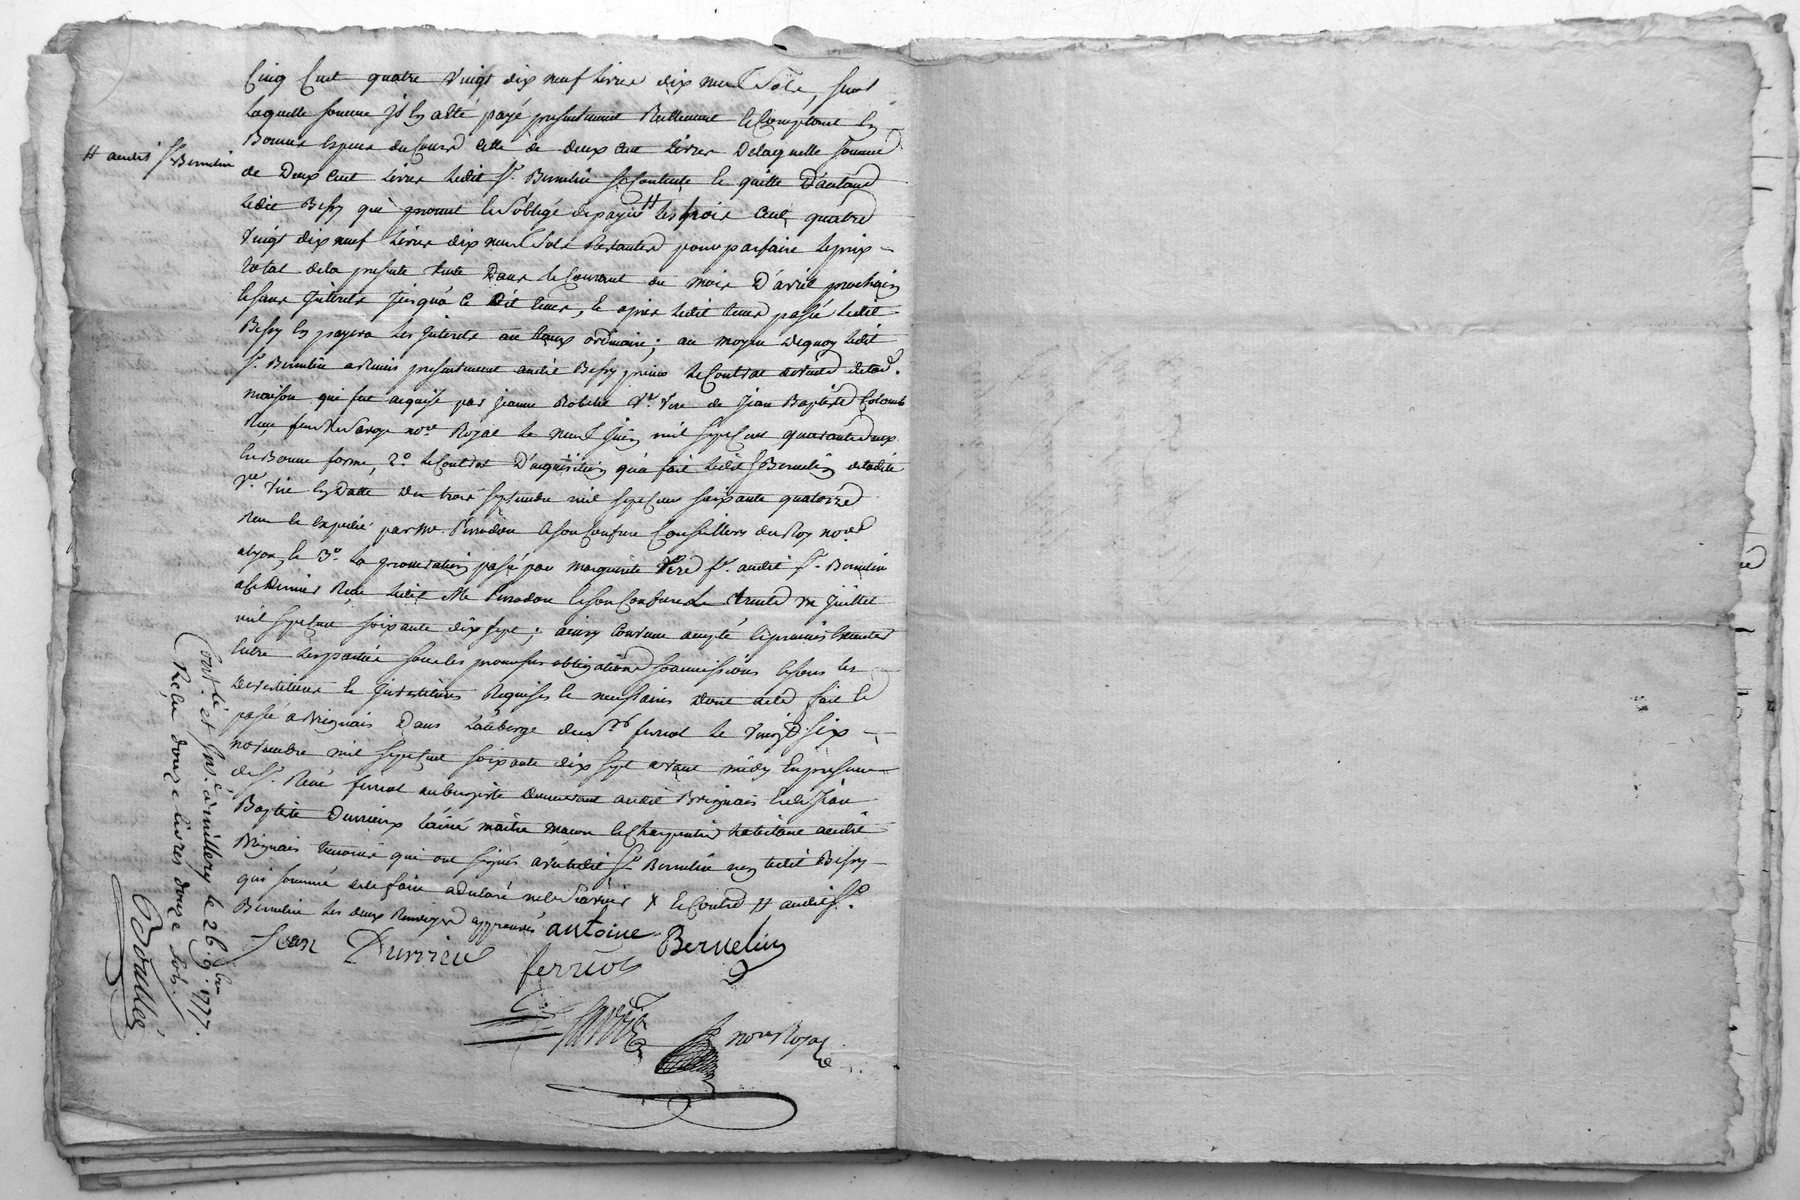 Cinq Cent quatre vingt dix neuf Livres dix neuf Sols, sur
laquelle somme Il En a Eté payé presentement Réellement Et Comptant En
Bonnes Espèces du Cours Celle de deux Cent Livres De laquelle somme
# audit Sr Bernelin
de Deux Cent Livres Ledit Sr. Bernelin Se Contente Et quitte D'autant
Ledit Bessy qui promet Et S'oblige de payer # Les trois Cent quatre
vingt dix neuf Livres dix neuf Sols Restantes pour parfaire Le prix
total de la presente vente Dans le Courant du mois D'avril prochain
Et sans Interets Jusqu'à Ce dit tems, Et après Ledit tems passé Ledit
Bessy En payera Les Interets au taux ordinaire; au moyen Dequoy Ledit
Sr. Bernelin a Remis presentement audit Bessy primo Le Contrat de vente de lad.
maison qui fut acquise par Jeanne Ve. vire de Jean Baptiste Colomb
Reçu feu Me nore. Royal Le neuf Juin mil Sept Cent quarante deux
En Bonne forme, 2o. Le Contrat D'acquisition qu'a fait Ledit Sr Bernelin de ladite
Ve. vire En Datte du trois Septembre mil Sept Cent soixante quatorze
Reçu Et Expedié par Me. Perrodon Et son Confrere Conseillers du Roy nores
a Lyon, Et 3o. La procuration passé par Marguerite vire Sr. audit Sr. Bernelin
Reçu Ledit Me Perrodon Et son Confrere Le trente un Juillet
mil Sept Cent soixante dix sept; ainsy Convenu accepté Et promis Executer
Entre Les parties sous Les promesses obligations soumissions Et sous Les
Devestitures Et Investitures Requises Et necessaires dont acte fait Et
passé a Brignais Dans L'auberge du Sr. ferriot Le vingt six
novembre mil Sept Cent soixante dix sept avant midy En presence
de Sr. René ferriot aubergiste demeurant audit Brignais Et de Jean
Baptiste Durrieux L'ainé maitre macon Et Charpentier habitant audit
Brignais temoins qui ont signés avec Ledit Sr Bernelin non Ledit Bessy
qui sommé de le faire a declaré ne le Savoir X Et Contre # audit Sr.
Bernelin Les deux Renvoyes approuvés antoine Bernelin
Jean Durrieu
ferriot
nore Royal
Contle. et Inse. à millery, le 26. 9bre. 1777.
Reçu douze livres douze sols.